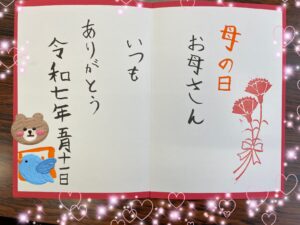 母の日
お母さん
いつも
ありがとう
令和七年五月十一日